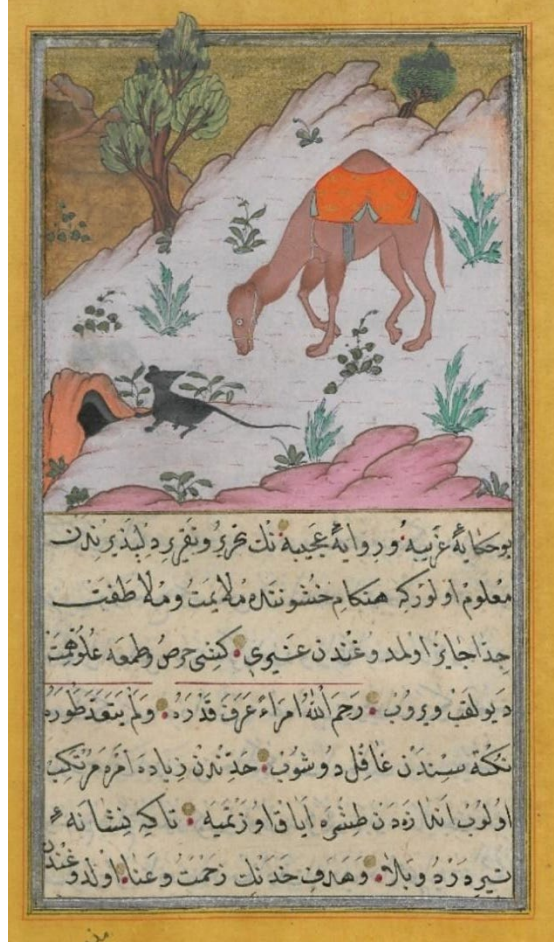 بوحكايۀ غريبه و روايۀ عجيبه نك تحرير و تقرير دلپذيرندن
معلوم اولوركه هنكام خشونتده ملايمت و ملاطفت
جدا جايز اولمدوغندن غيرى كشى حرص و طمعه علوهمت
ديو لقب ويروب رحم الله امراء عرف قدره ولم يتعد طوره
نكته سندن غافل دوشوب حدندن زياده امره مرتكب
اولوب اندازه دن طشره اياق اوزتميه تاكه نشانه ء
تير درد و بلا و هدف خدنك زحمت و عنا اولدوغندن